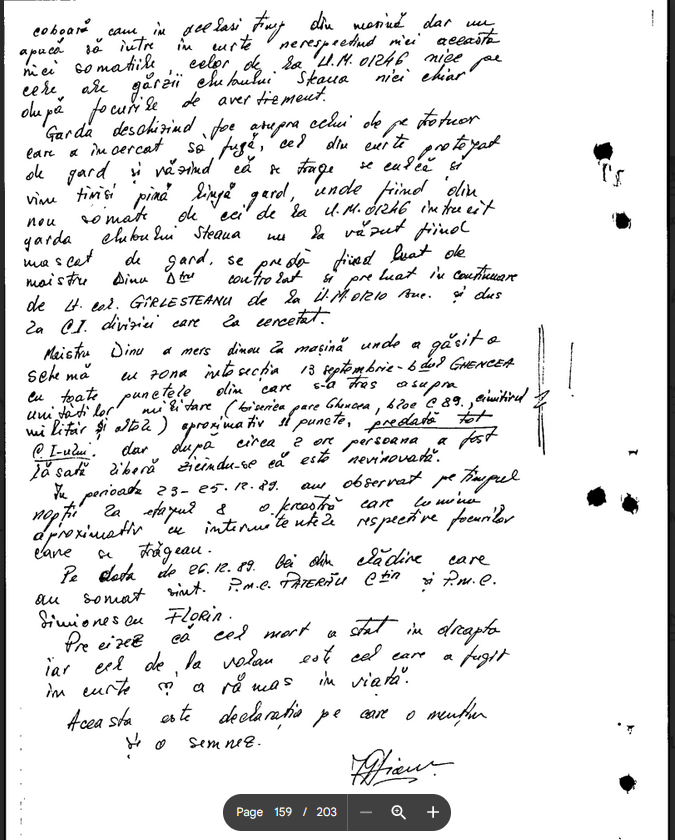 coboară cam în același timp din mașină dar nu
apucă să intre în curte nerespectînd nici aceasta
nici somațiile celor de la U.M. 01246 nici pe
cele ale gărzii clubului Steaua nici chiar
după focurile de avertisment.
Garda deschizînd foc asupra celui de pe trotuar
care a încercat să fugă, cel din curte protejat
de gard și văzînd că se trage se culcă și
vine tîrîș pînă lîngă gard, unde fiind din
nou somat de cei de la U.M. 01246 întrucît
garda clubului Steaua nu la văzut fiind
mascat de gard, se predă fiind luat de
maistru Dinu Dtru controlat și preluat în continuare
de Lt. col. GÎRLESTEANU de la U.M. 01210 Buc. și dus
la C.I. diviziei care la cercetat.
Maistru Dinu a mers dinou la mașină unde a găsit o
schemă cu zona intersecția 13 septembrie - bdul GHENCEA
cu toate punctele din care s-a tras asupra
unităților militare (biserica parc Ghencea, bloc C 89, cimitirul
militar și altele) aproximativ 8 puncte, predată tot
C.I-ului. dar după circa 2 ore persoana a fost
lăsată liberă zicîndu-se că este nevinovată.
În perioada 23-25.12.89. am observat pe timpul
nopții la etajul 8 o fereastră care lumina
aproximativ cu intermitențele respective focurilor
care se trăgeau.
Pe data de 26.12.89. Cei din clădire care
au somat sînt. P.m.c. PATERĂU Ctin și P.m.c.
Simionescu FLORIN.
Precizez că cel mort a stat în dreapta
iar cel de la volan este cel care a fugit
în curte și a rămas în viață.
Aceasta este declarația pe care o mențin
și o semnez.
Page 159 / 203